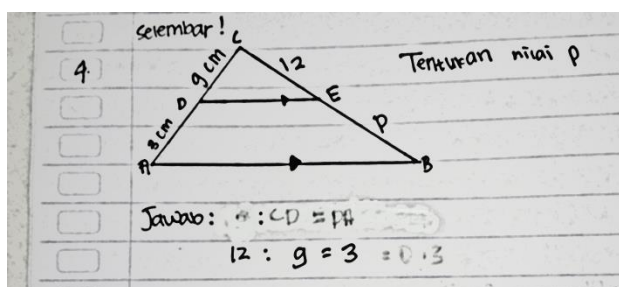 selembar!
4.
C
9 cm
12
Tentukan nilai p
D
E
8 cm
p
A
B
Jawab: : CD = DA
12 : 9 = 3 = 0.3